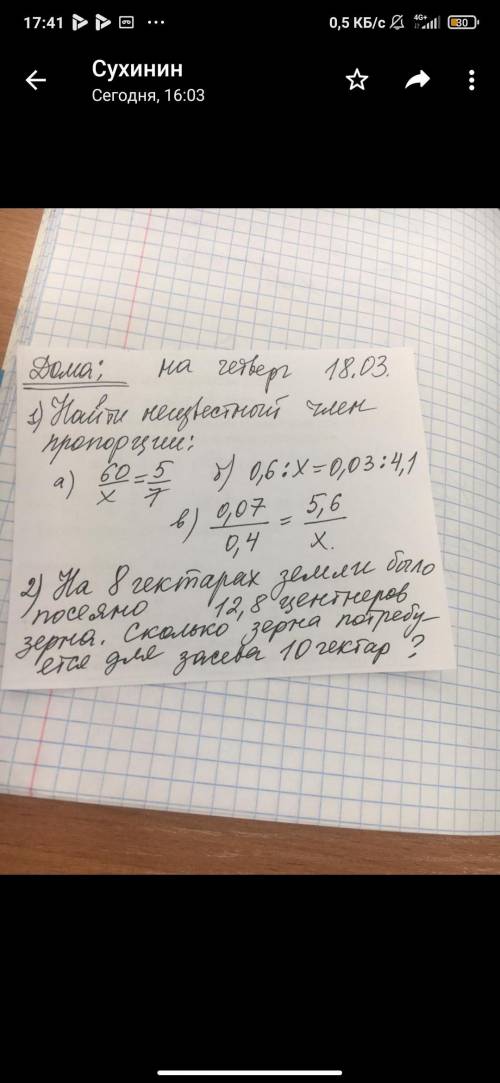 17:41 ... 0,5 КБ/с 4G+ 30
Сухинин
Сегодня, 16:03
Дома: на четверг 18.03.
1) Найти неизвестный член
пропорции:
а) 60/x = 5/7 б) 0,6 : x = 0,03 : 4,1
в) 0,07/0,4 = 5,6/x.
2) На 8 гектарах земли было
посеяно 12,8 центнеров
зерна. Сколько зерна потребу-
ется для засева 10 гектар?